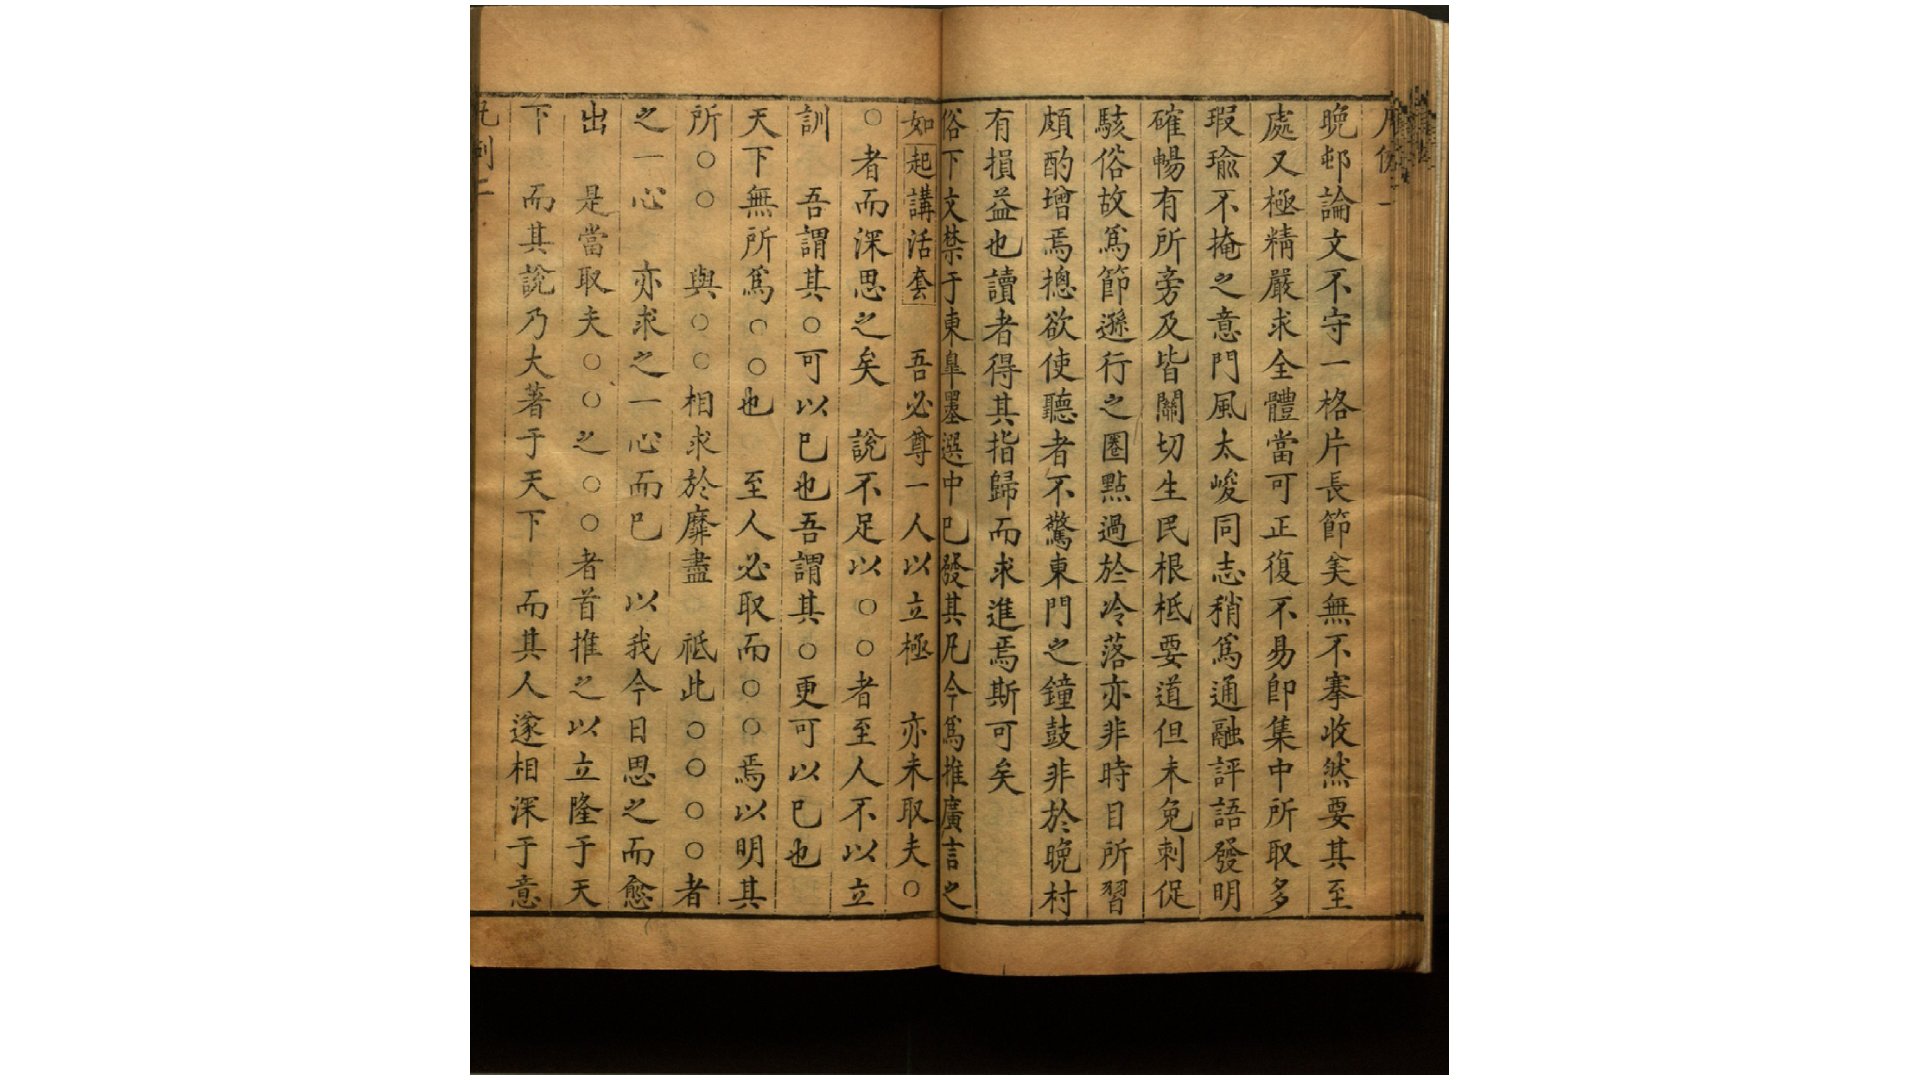 晚邨論文不守一格片長節美無不搴收然要其至
處又極精嚴求全體當可正復不易卽集中所取多
瑕瑜不掩之意門風太峻同志稍爲通融評語發明
確暢有所旁及皆關切生民根柢要道但未免刺促
駭俗故爲節遜行之圈點過於冷落亦非時目所習
頗酌增焉摠欲使聽者不驚東門之鐘鼓非於晚村
有損益也讀者得其指歸而求進焉斯可矣
俗下文禁于東臯墨選中已發其凡今爲推廣言之
如起講活套 吾必尊一人以立極 亦未取夫○
○者而深思之矣 說不足以○○者至人不以立
訓 吾謂其○可以已也吾謂其○更可以已也
天下無所爲○○也 至人必取而○○焉以明其
所○○ 與○○相求於靡盡 祗此○○○○者
之一心 亦求之一心而已 以我今日思之而愈
出 是當取夫○○之○○者首推之以立隆于天
下 而其說乃大著于天下 而其人遂相深于意
凡例二